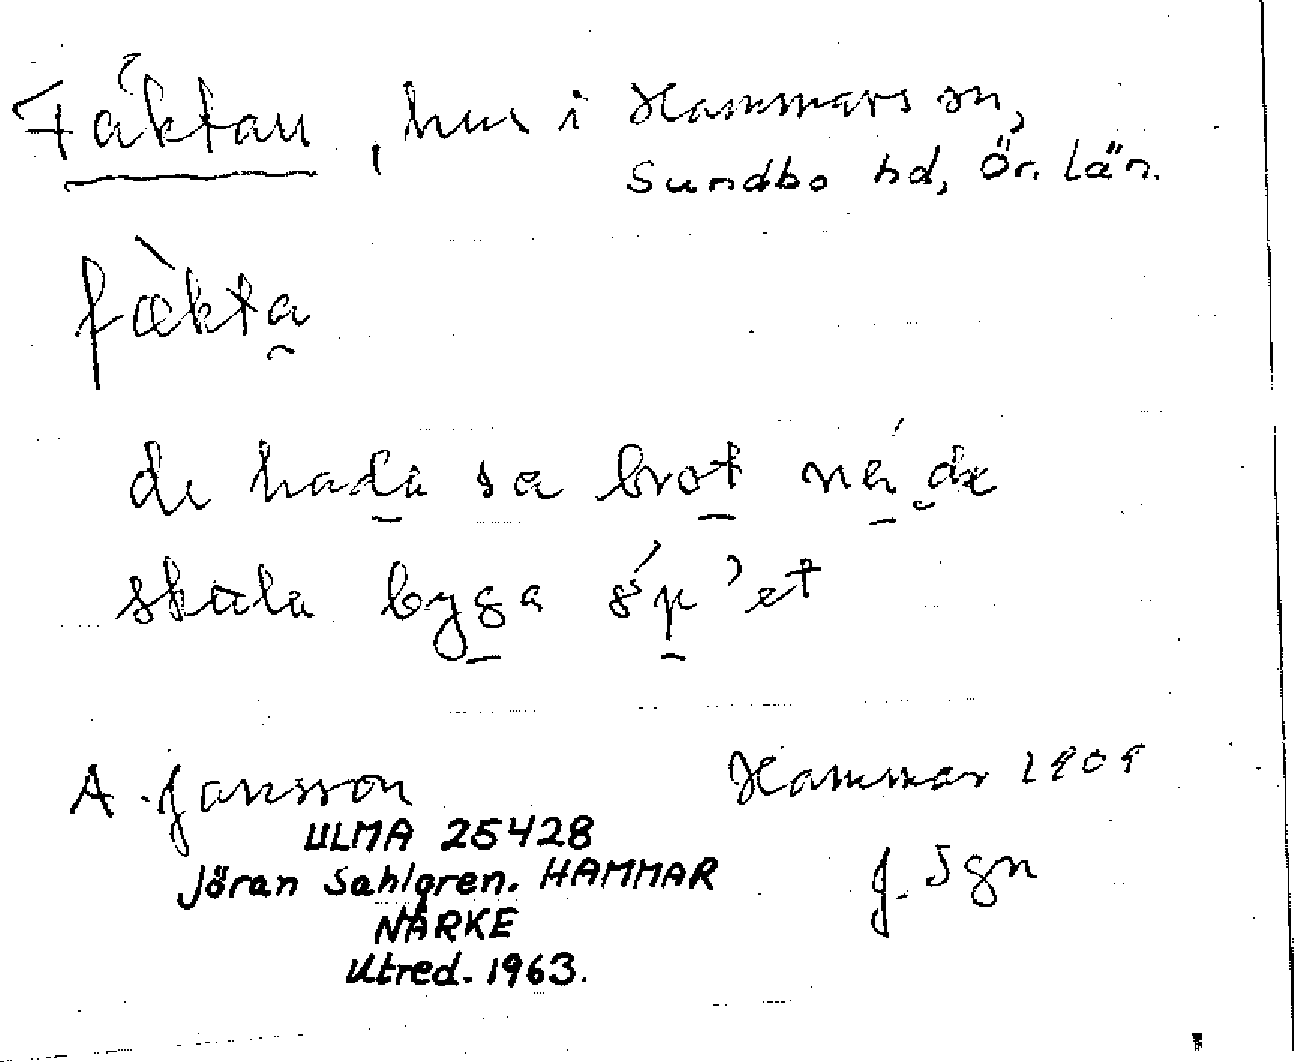 Fäktan, hus i Hammars sn,
Sundbo hd, Ör. län.
fækta
de hada sa brot né, dæ
skula byga óp 'et
A. Jansson Hammar 1909
ULMA 25428
Jöran Sahlgren. HAMMAR J. Sgn
NÄRKE
Utred. 1963.